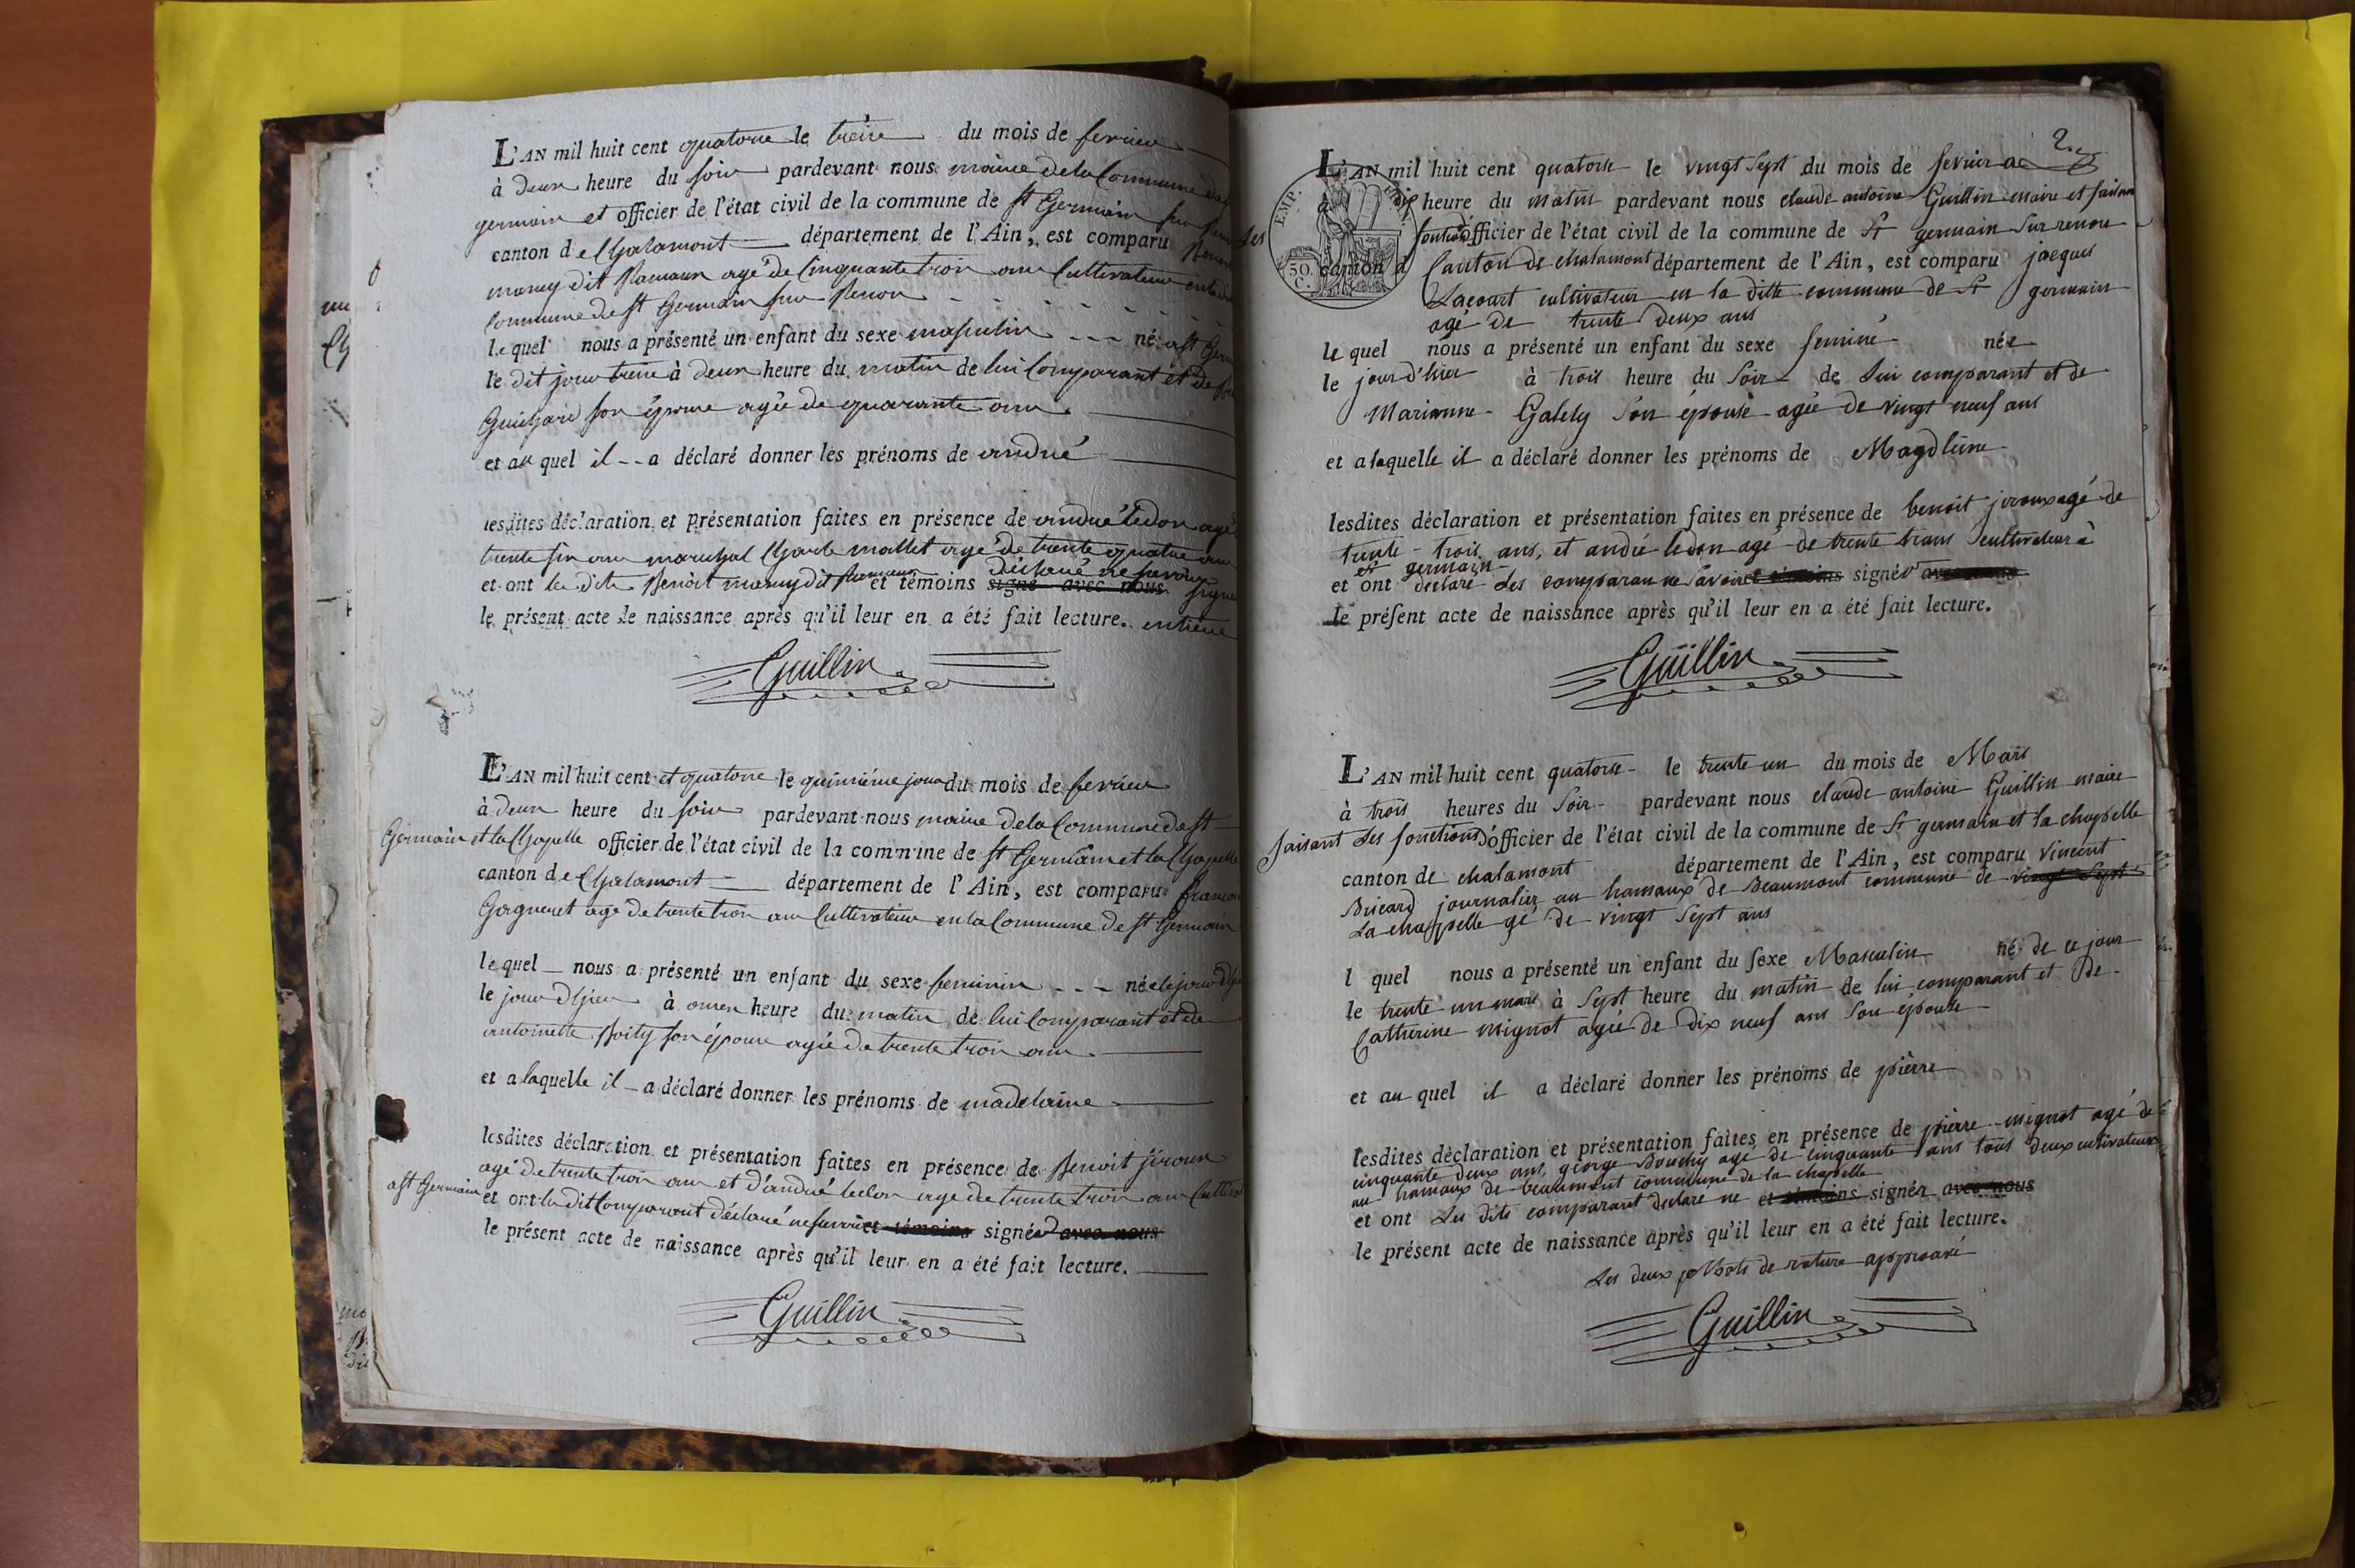 L'AN mil huit cent quatorze le treize du mois de fevrier
à deux heure du soir pardevant nous maire de la Commune de st
germain et officier de l'état civil de la commune de st Germain sur
canton de Chalamont département de l'Ain, est comparu Benoit
mamy dit agé de Cinquante trois ans Cultivateur
Commune de st Germain sur Renon
lequel nous a présenté un enfant du sexe masculin né a st
le dit jour treize à deux heure du matin de lui Comparant et de
Guichard son épouse agée de quarante ans
et au quel il a déclaré donner les prénoms de andré
lesdites déclaration et présentation faites en présence de andré ledon agé
trente six ans marechal Charle mallet agé de trente quatre ans
déclaré ne savoir
et ont le dits Benoit mamy dit et témoins signé avec nous signer
le présent acte de naissance après qu'il leur en a été fait lecture. entiere
Guillin
L'AN mil huit cent et quatorze le quinzième jour du mois de fevrier
à deux heure du soir pardevant nous maire de la Commune de st
Germain et la Chapelle officier de l'état civil de la commune de st Germain et la Chapelle
canton de Chalamont département de l'Ain, est comparu francois
Gagneret agé de trente trois ans Cultivateur en la Commune de st Germain
lequel nous a présenté un enfant du sexe feminin née le jour d'hier
le jour d'hier à onzen heure du matin de lui Comparant et de
antoinette son épouse agée de trente trois ans
et a laquelle il a déclaré donner les prénoms de madelaine
lesdites déclaration et présentation faites en présence de Benoit jiroux
agé de trente trois ans et d'andré ledon age de trente trois ans
a st Germain et ont le dit Comparant déclaré ne savoir et témoins signér avec nous
le présent acte de naissance après qu'il leur en a été fait lecture.
Guillin
2.
L'AN mil huit cent quatorse le vingt sept du mois de fevrier a
dix heure du matin pardevant nous claude antoine Guillin maire et faisan
les fontion d'officier de l'état civil de la commune de St germain sur renon
canton d Canton de chalamont département de l'Ain, est comparu jacques
Lacourt cultivateur en la ditte commune de St germain
agé de trente deux ans
le quel nous a présenté un enfant du sexe feminé née
le jour d'hier à trois heure du Soir de Lui comparant et de
Marianne Galely Son épouse agée de vingt neuf ans
et a laquelle il a déclaré donner les prénoms de Magdleine
lesdites déclaration et présentation faites en présence de benoit jiroux agé de
trente trois ans, et andié ledon agé de trente trans cultivateur à
St germain
et ont declaré Les comparan ne Savoir et témoins signér avec nous
le présent acte de naissance après qu'il leur en a été fait lecture.
Guillin
L'AN mil huit cent quatorse le trente un du mois de Mars
à trois heures du Soir pardevant nous claude antoine Guillin maire
faisant Les fonctions d'officier de l'état civil de la commune de St germain et la chapelle
canton de chalamont département de l'Ain, est comparu vincent
Bricard journalier au hamaux de Beaumont commune de vingt Sept
La chappelle gé de vingt Sept ans
l quel nous a présenté un enfant du sexe Masculin né de ce jour
le trente un mars à Sept heure du matin de lui comparant et De
Catherine mignot agée de dix neuf ans Son épouse
et au quel il a déclaré donner les prénoms de pierre
lesdites déclaration et présentation faites en présence de pierre mignot agé de
cinquante deux ans, george Bouchy agé de cinquante ans tous deux cultivateur
au hamaux de beaumont commune de la chapelle
et ont Les dits comparant declare ne et témoins signér avec nous
le présent acte de naissance après qu'il leur en a été fait lecture.
Les deux Mots de rature approuvé
Guillin